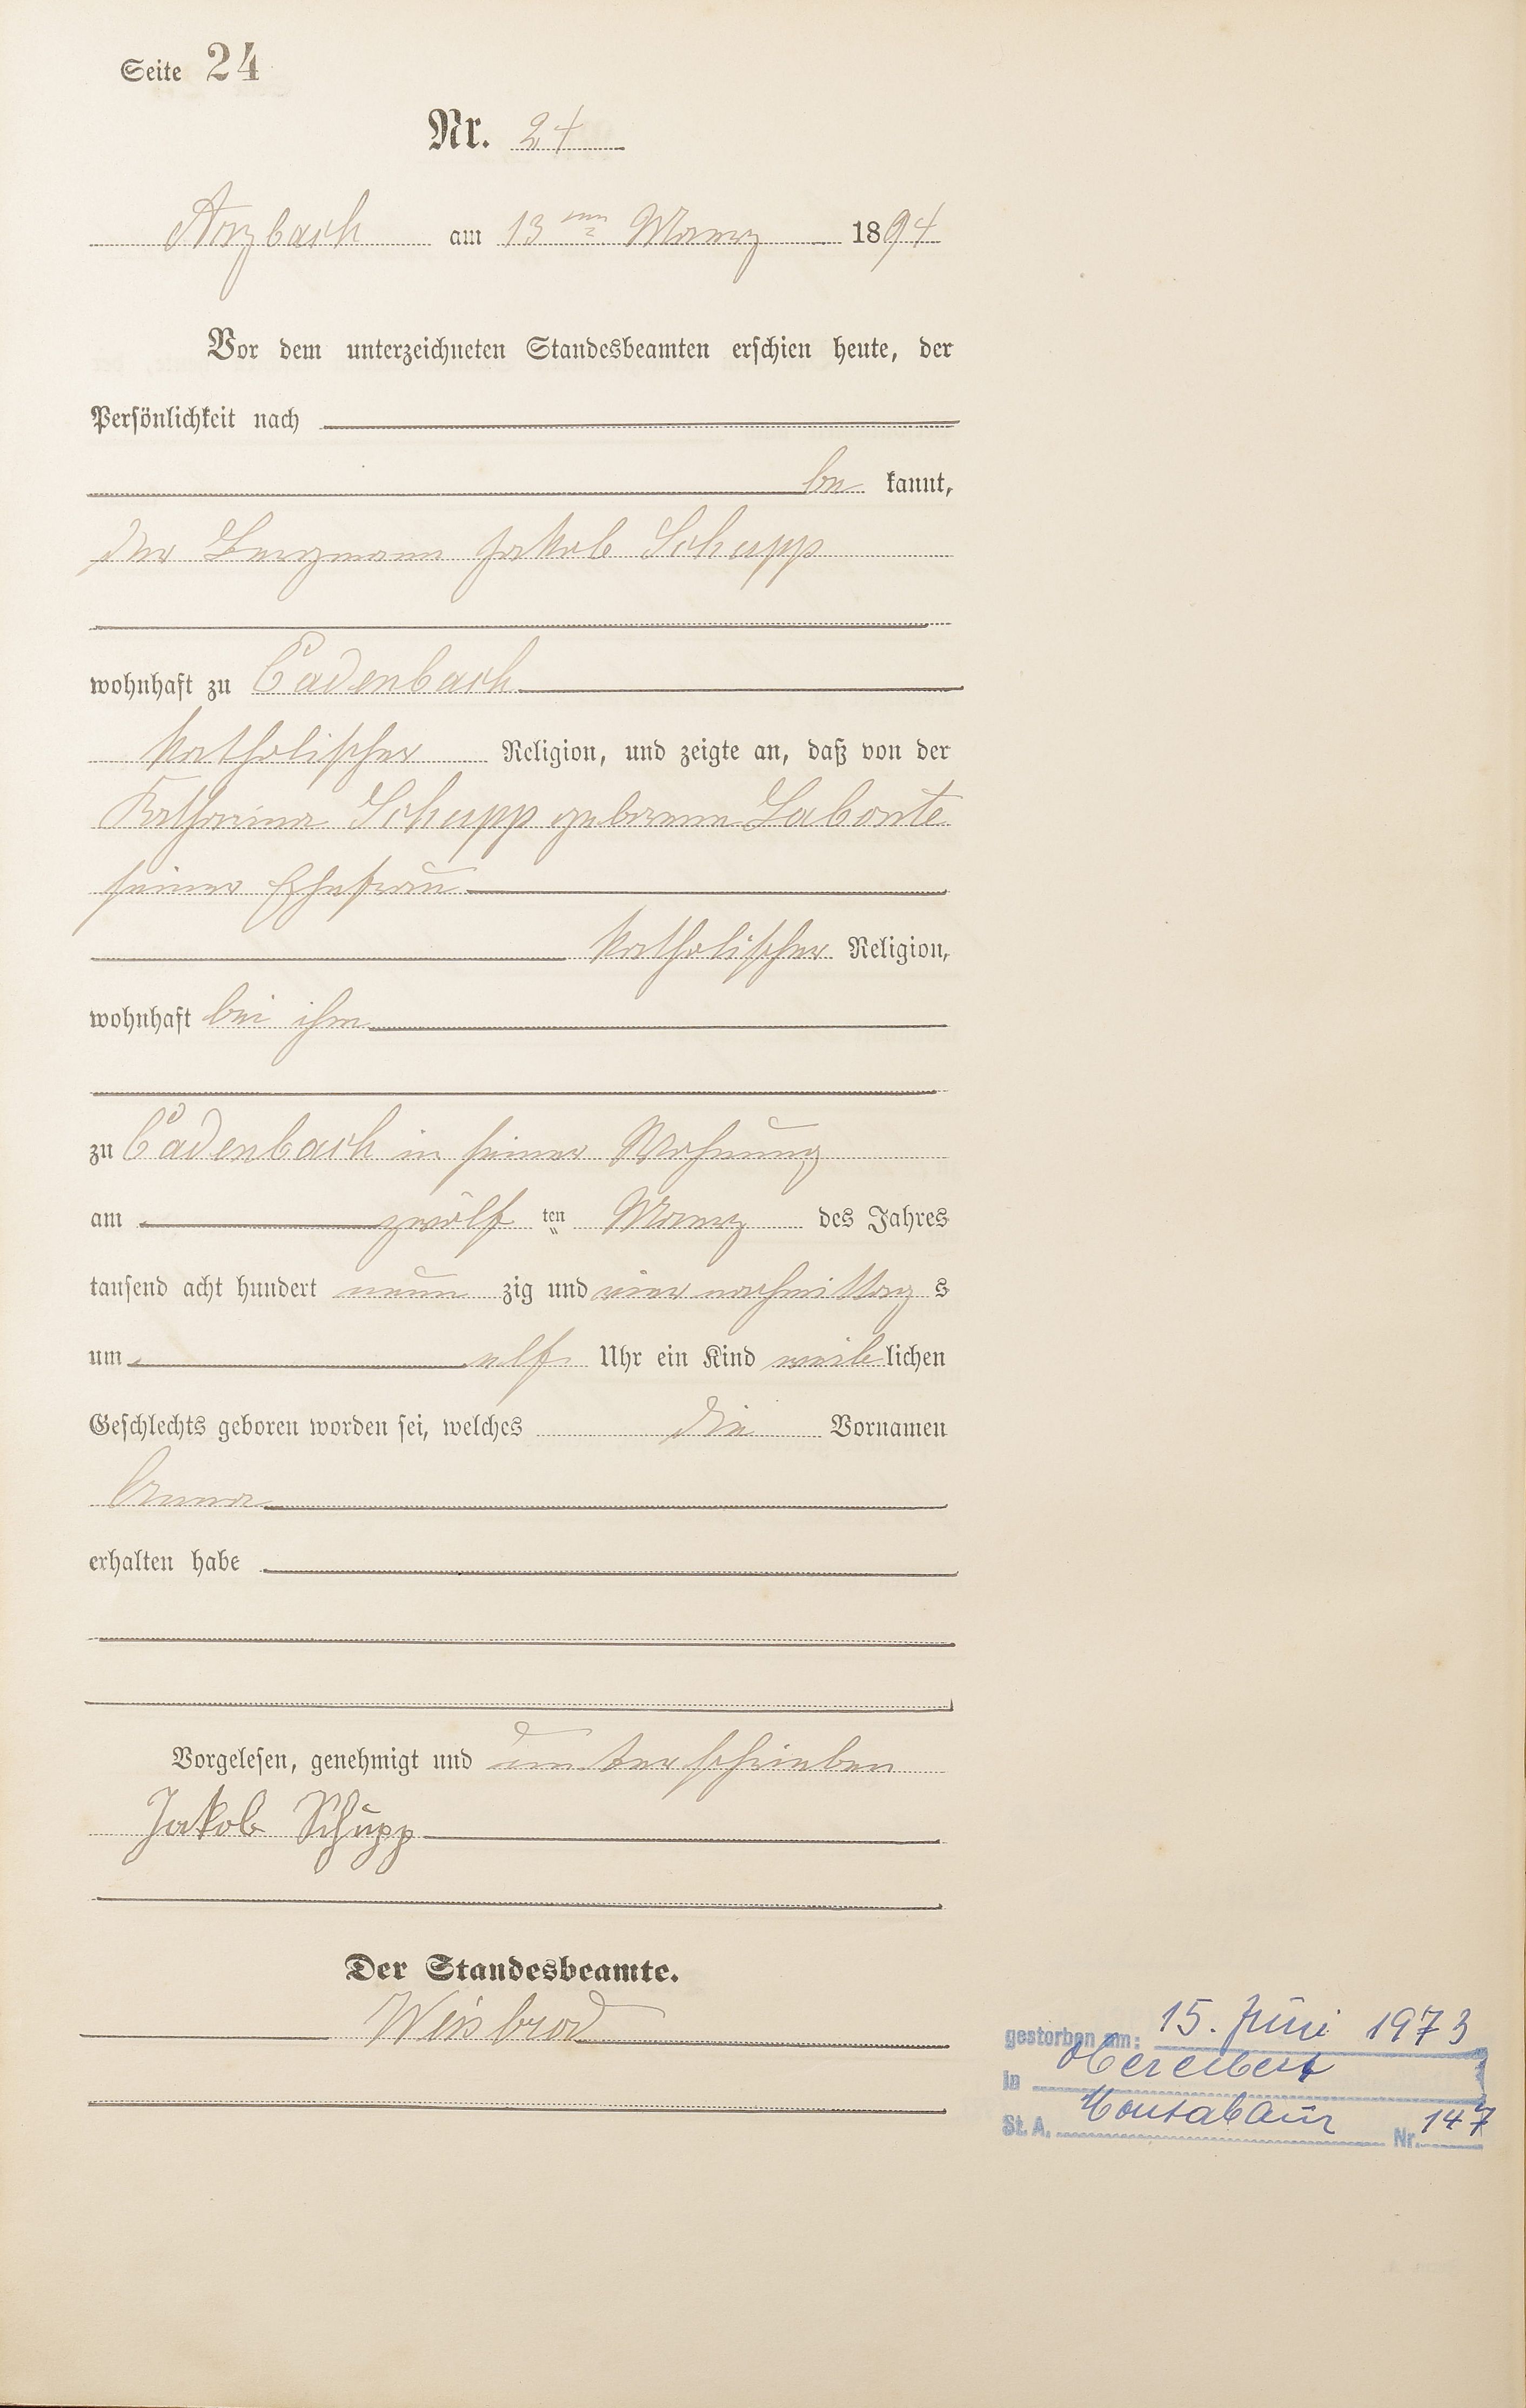 Seite 24
Nr. 24
Arzbach am 13ten März 1894
Vor dem unterzeichneten Standesbeamten erschien heute, der
Persönlichkeit nach
be kannt,
der Bergmann Jakob Schupp
wohnhaft zu Cadenbach
katholischer Religion, und zeigte an, daß von der
Katharina Schupp geborene Labonte
seiner Ehefrau
katholischer Religion,
wohnhaft bei ihm
zu Cadenbach in seiner Wohnung
am zwölf ten März des Jahres
tausend acht hundert neun zig und vier nachmittag s
um elf Uhr ein Kind weiblichen
Geschlechts geboren worden sei, welches die Vornamen
Anna
erhalten habe
Vorgelesen, genehmigt und unterschrieben
Jakob Schupp
Der Standesbeamte.
Weisbrod
gestorben am: 15. Juni 1973
in Oberelbert
St. A. Montabaur Nr. 147